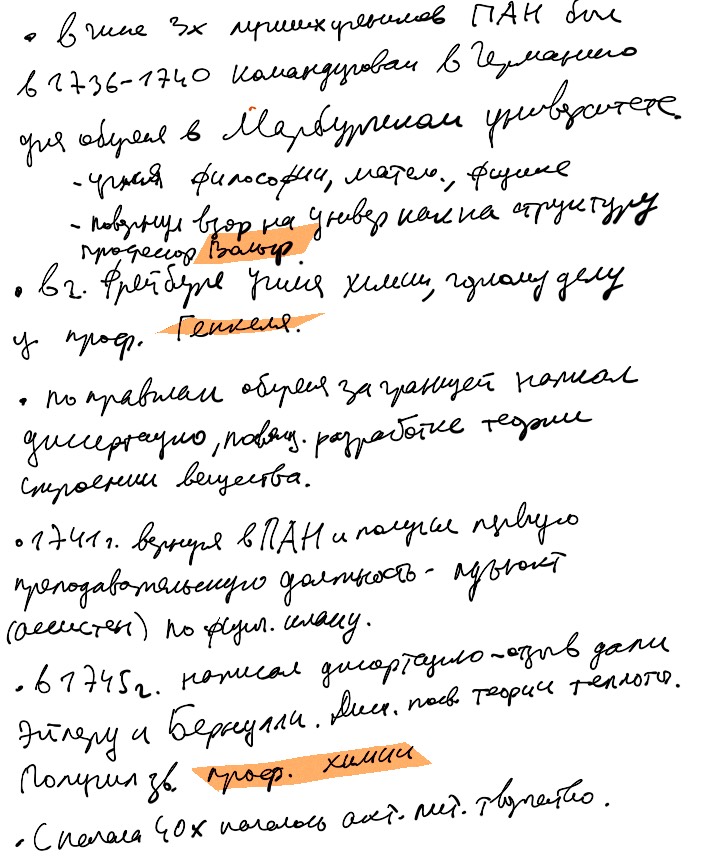 • в числе 3х лучших учеников ПАН был
в 1736-1740 командирован в Германию
для обучения в Марбургском университете.
- учился философии, матем., физике
- повернул взор на универ как на структуру
профессор Вольф.
• в г. Фрейбурге учился химии, горному делу
у проф. Генкеля.
• по правилам обучения за границей написал
диссертацию, посвящ. разработке теории
строении вещества.
• 1741г. вернулся в ПАН и получил первую
преподавательскую должность - адъюнкт
(ассистент) по физ. классу.
• в 1745г. написал дисертацию - отзыв дали
Эйлеру и Бернулли. Дисс. посв. теории теплоты.
Получил зв. проф. химии
• С начала 40х началось акт. лит. творчество.